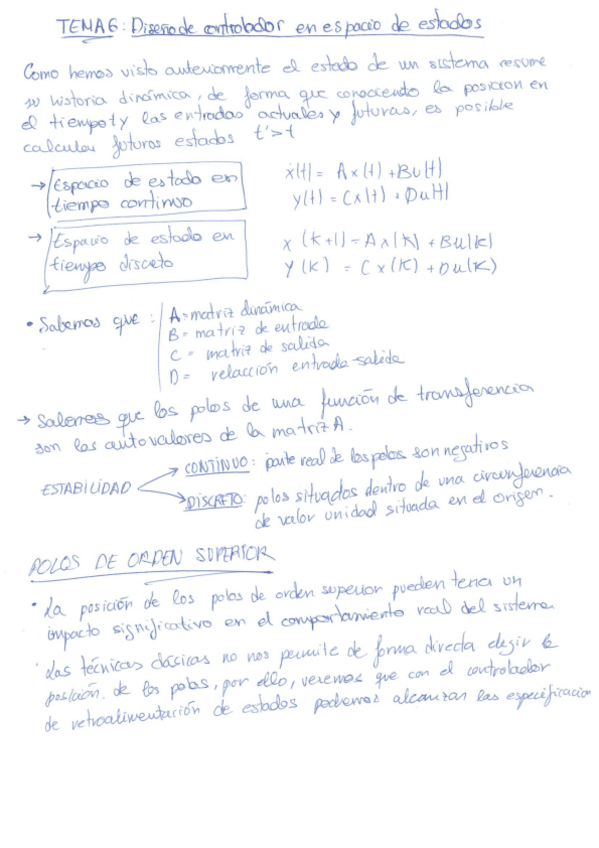 TEMA 6: Diseño de controlador en espacio de estados
Como hemos visto anteriormente el estado de un sistema resume
su historia dinámica, de forma que conociendo la posicion en
el tiempo t y las entradas actuales y futuras, es posible
calcular futuros estados t'>t
→ Espacio de estado en
tiempo continuo
ẋ(t) = Ax(t) + Bu(t)
y(t) = Cx(t) + Du(t)
→ Espacio de estado en
tiempo discreto
x (k+1) = Ax(k) + Bu(k)
y (k) = Cx(k) + Du(k)
• Sabemos que:
A = matriz dinámica
B = matriz de entrada
C = matriz de salida
D = relacción entrada-salida
→ Sabemos que los polos de una función de transferencia
son los autovalores de la matriz A.
ESTABILIDAD
CONTINUO: parte real de los polos son negativos
DISCRETO: polos situados dentro de una circunferencia
de valor unidad situada en el origen.
POLOS DE ORDEN SUPERIOR
• La posición de los polos de orden superior pueden tener un
impacto significativo en el comportamiento real del sistema
• Las técnicas clásicas no nos permite de forma directa elegir la
posición de los polos, por ello, veremos que con el controlador
de retroalimentación de estados podremos alcanzar las especificacion